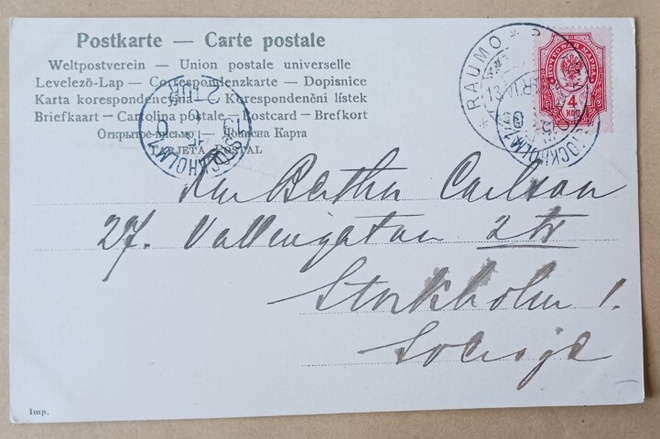 Postkarte — Carte postale
Weltpostverein — Union postale universelle
Levelezõ-Lap — Correspondenzkarte — Dopisnice
Karta korespondencyjna — Korespondenční lístek
Briefkaart — Cartolina postale — Postcard — Brefkort
Открытое письмо — Дописна Карта
TARJETA POSTAL
RAUMO
STOCKHOLM 1
2 TUR
15
STOCKHOLM 1
ПОЧТОВАЯ МАРКА
4
КОП
Bertha Carlson
27. Vallingatan 2 tr
Stockholm 1.
Sverige
Imp.